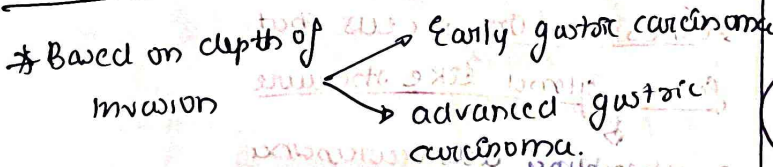 * Based on depth of
invasion
Early gastric carcinoma
advanced gastric
carcinoma.